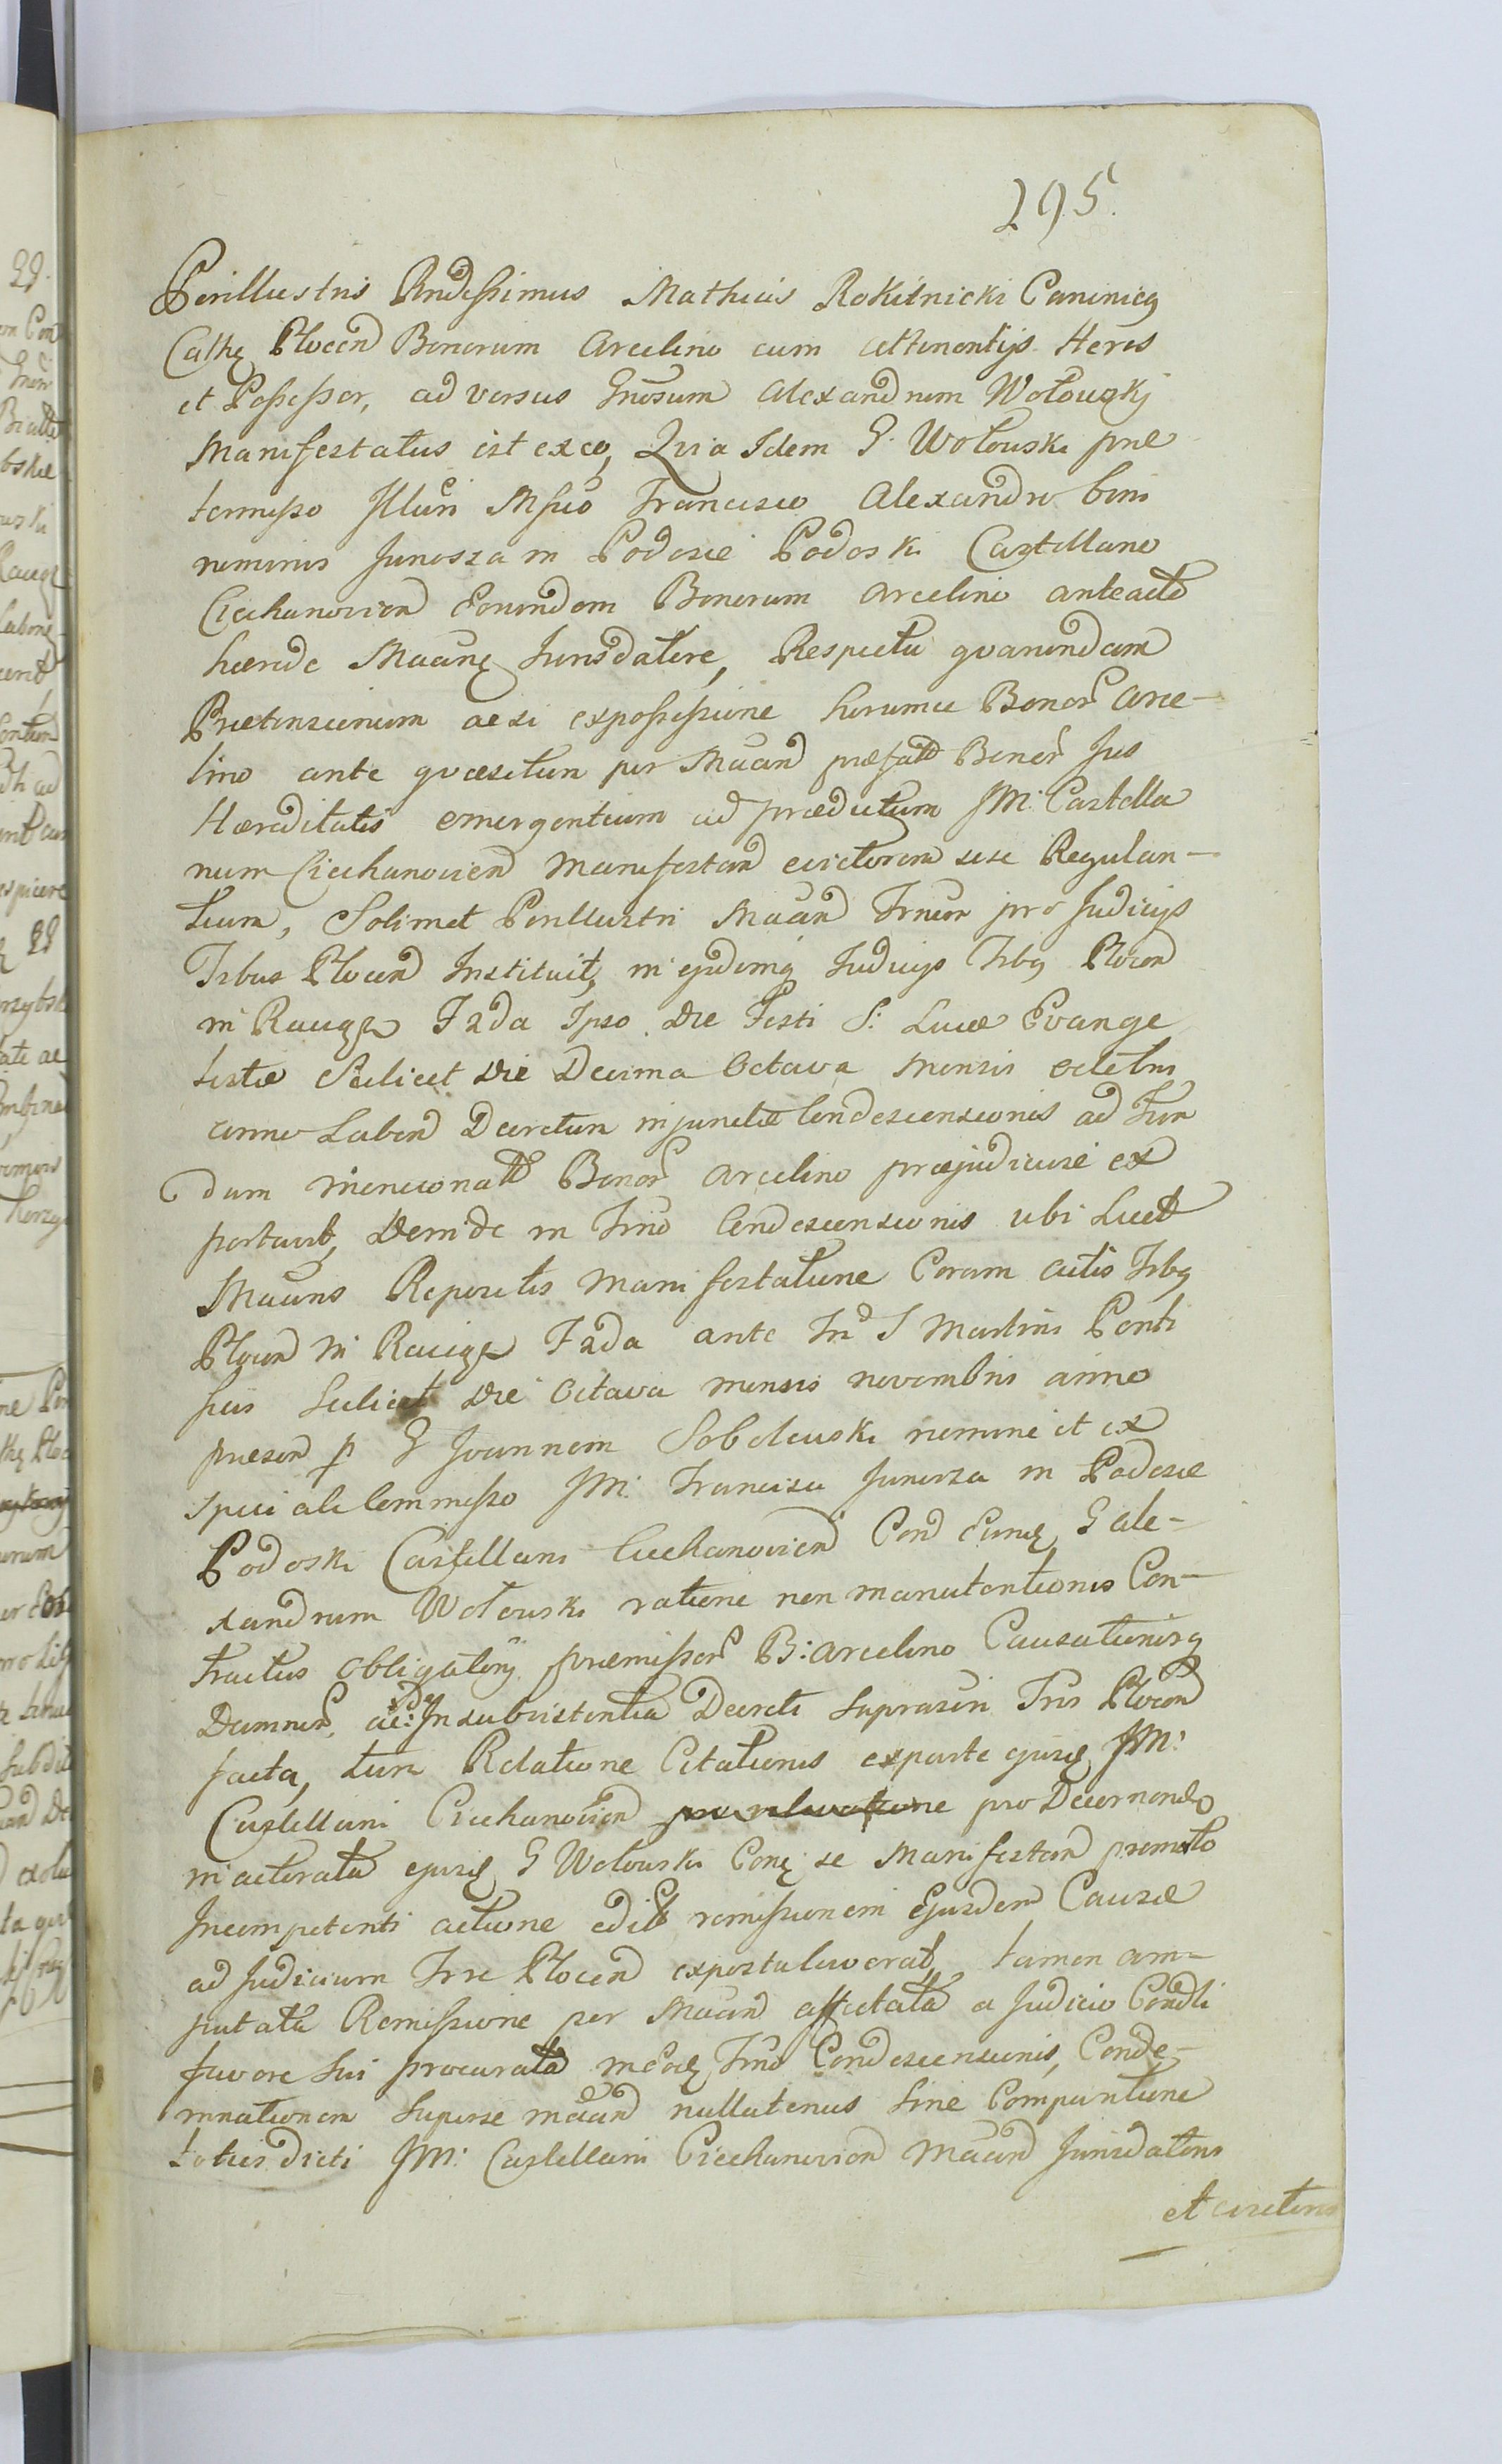 295.
Perillustris Rndissimus Mathias Rokitnicki Canonicq
Cathę Plocen Bonorum Arcelino cum attinentijs Heres
et Possessor, adversus Gnosum Alexandrum Wołouski
Manifestatus est exeo, Quia Idem G. Wołouski præ
termisso Illūri Mfico Francisco Alexandro bini
nominis Junosza in Podosie Podoski Castellano
Ciechanovien Eorundem Bonorum Arcelino anteacto
hærede Maanę Jurisdatore, Respectu quarundam
Prætensionum aexi expossessione horumce Bonor Arce-
lino ante quæsitum per Maan præfatt Bonor Jus
Hæreditatis emergentium ad prædictum JM: Castella
num Ciechanovien Manifestan evictorem sese Regulan-
tium, Solimet Perillustri Maan Trmum pro Judicijs
Trbus Plocen Instituit, in ejudemq Judicijs Trbq Plocen
in Raciąż Fzda Ipso Die Festi S: Lucæ Evange
listæ Scilicet Die Decima Octava Mensis Octobris
anno Laben Decretum injunctæ Condescensionis ad Fun
dum mencionatt Bonor Arcelino præjudiciose ex
portavit, Deinde in Trmo Condescensionis ubi Licet
Maans Repositis Manifestatione Coram actis Trbq
Plocen in Raciąż Fzda ante Fn S Martini Ponti
ficis Scilicet Die Octava mensis novembris anno
præsen p G Joannem Sobolewski nomine et ex
speciali commisso JM: Francisci Junosza in Podosie
Podoski Castellani Ciechanovien Con Eunę G Ale-
xandrum Wołouski ratione non manutentionis Con-
tractus obligatorij præmissor B: Arcelino Causationisq
Damnor, Insubsistentia Decreti Suprascri Tris Plocen
facta, tum Relatione Citationis exparte ejusę JM:
Castellani Ciechanovien pro Decernendo
in actoratu ejusę G Wołouski Conę se Manifestan promoto
Incompetenti actione edit remissionem Ejusdem Causæ
ad Judicium Trre Plocen expostulaverat, tamen am-
putata Remissione per Maan affectata a Judicio Condli
favore Sui procurata in Eoę Trmo Condescensionis, Conde-
mnationem Superse maan nullatenus Sine Comparitione
toties dicti JM: Castellani Ciechanovien Maan Jurisdatoris
et evictoris